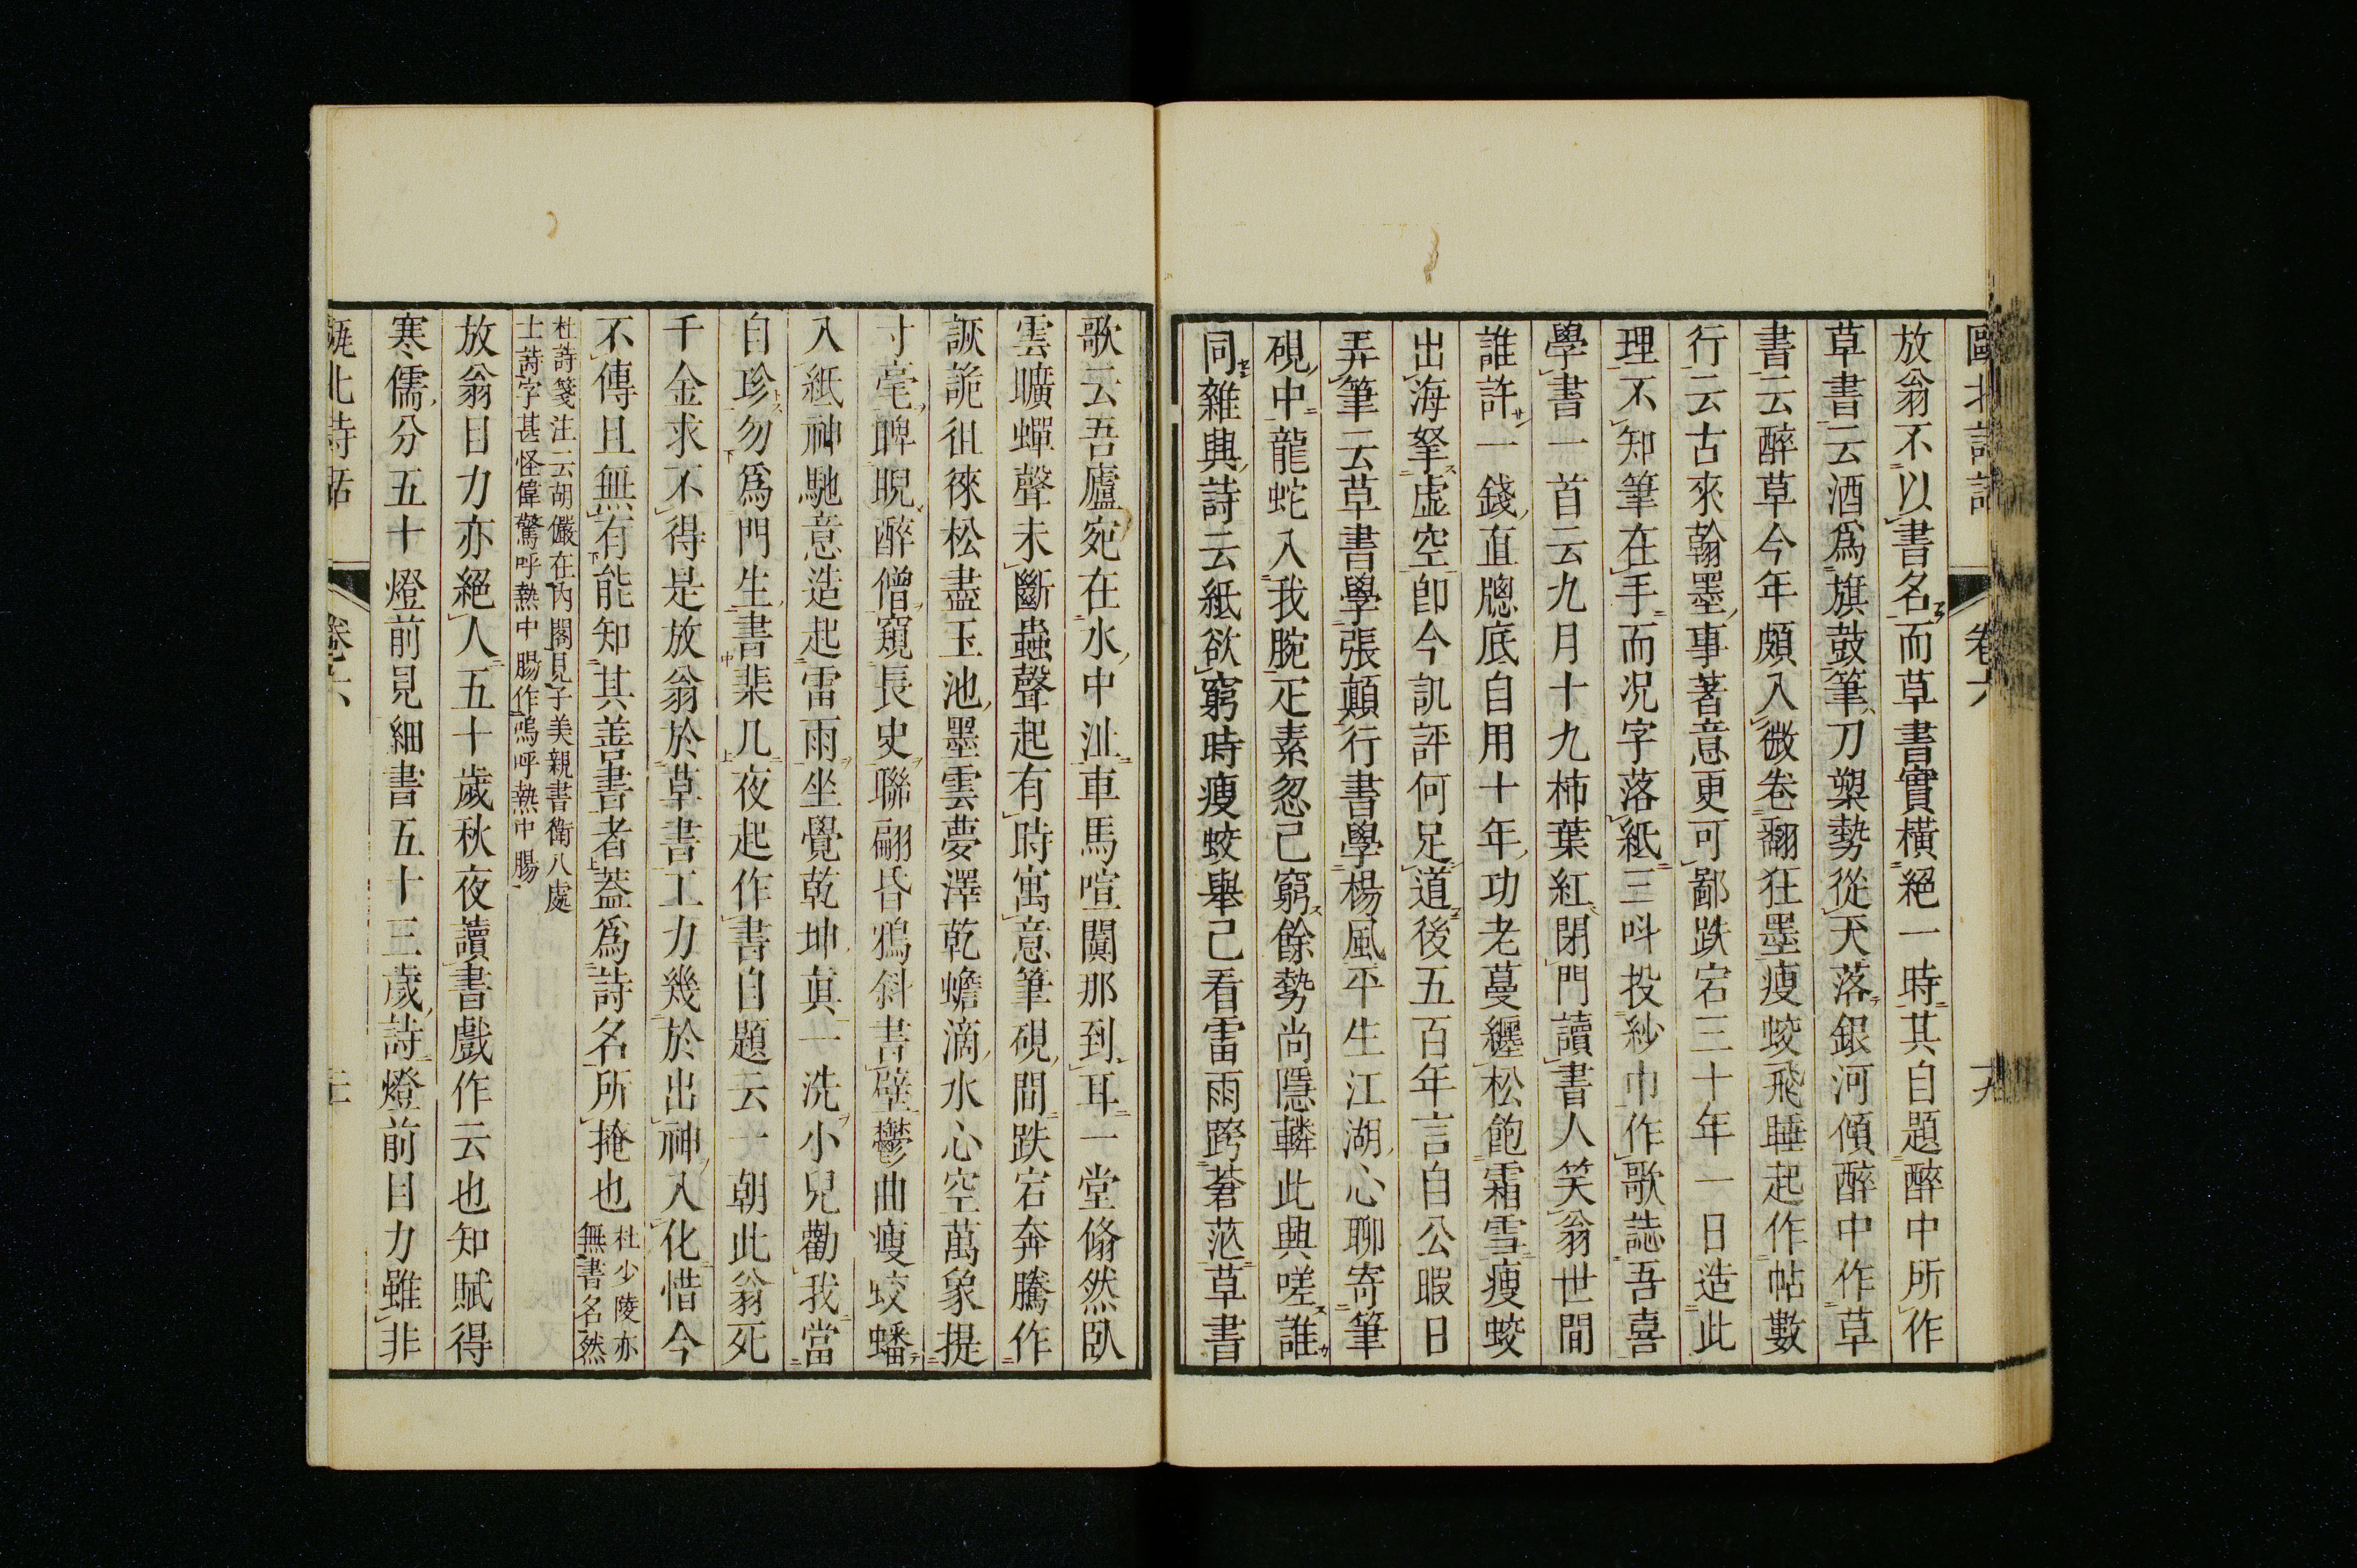 甌北詩話 卷六 十九
放翁不以書名而草書實橫絕一時其自題醉中所作
草書云酒爲旗鼓筆刀槊勢從天落銀河傾醉中作草
書云醉草今年頗入微卷翻狂墨瘦蛟飛睡起作帖數
行云古來翰墨事著意更可鄙跌宕三十年一日造此
理不知筆在手而况字落紙三呌投紗巾作歌誌吾喜
學書一首云九月十九柿葉紅閉門讀書人笑翁世間
誰許一錢直牕底自用十年功老蔓纏松飽霜雪瘦蛟
出海拏虛空卽今訊評何足道後五百年言自公暇日
弄筆云草書學張顛行書學楊風平生江湖心聊寄筆
硯中龍蛇入我腕疋素忽己窮餘勢尚隱轔此興嗟誰
同雜興詩云紙欲窮時瘦蛟舉己看雷雨跨蒼茫草書
歌云吾廬宛在水中沚車馬喧闐那到耳一堂翛然臥
雲曠蟬聲未斷蟲聲起有時寓意筆硯間跌宕奔騰作
詼詭徂徠松盡玉池墨雲夢澤乾蟾滴水心空萬象提
寸毫睥睨醉僧窺長史聯翩昏鴉斜書壁鬱曲瘦蛟蟠
入紙神馳意造起雷雨坐覺乾坤眞一洗小兒勸我當
自珍勿爲門生書棐几夜起作書自題云一朝此翁死
千金求不得是放翁於草書工力幾於出神入化惜今
不傳且無有能知其善書者葢爲詩名所掩也杜少陵亦
無書名然
杜詩箋注云胡儼在內閣見子美親書衛八處
士詩字甚怪偉驚呼熱中腸作嗚呼熱中腸
放翁目力亦絕人五十歲秋夜讀書戲作云也知賦得
寒儒分五十燈前見細書五十三歲詩燈前目力雖非
甌北詩話 卷六 二十